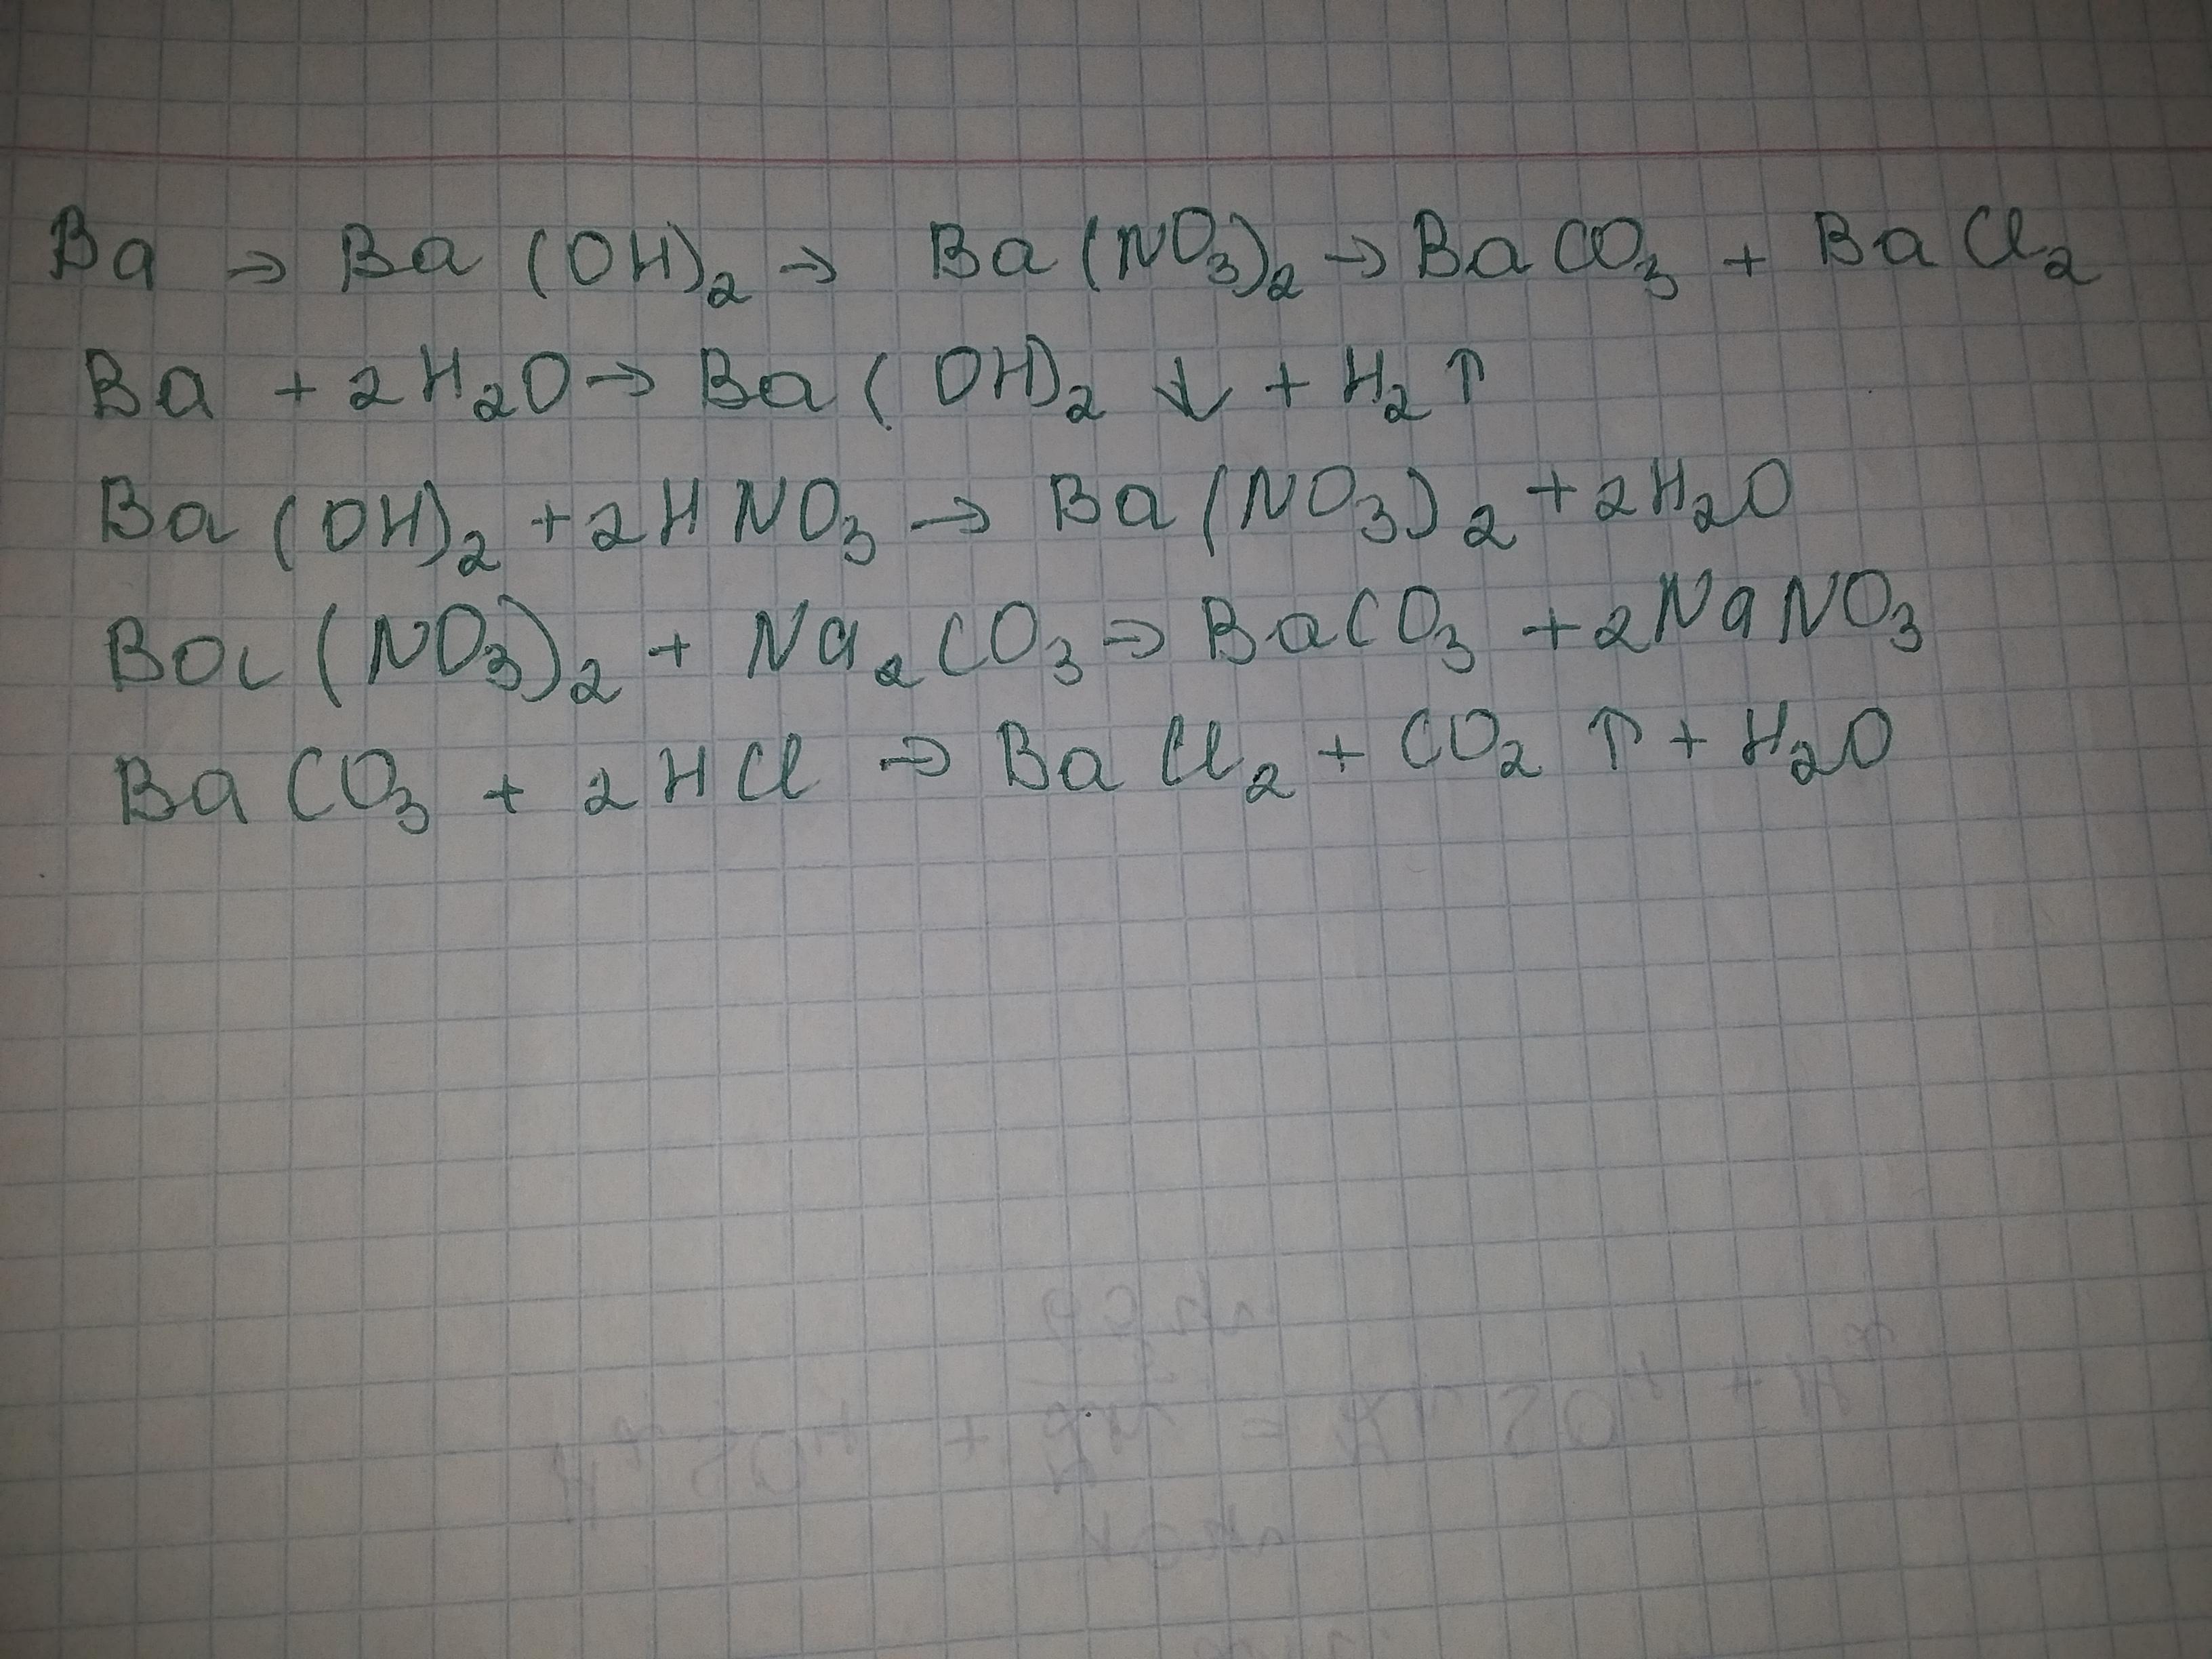 Ba → Ba (OH)₂ → Ba (NO₃)₂ → BaCO₃ + BaCl₂
Ba + 2H₂O → Ba (OH)₂ ↓ + H₂ ↑
Ba (OH)₂ + 2HNO₃ → Ba (NO₃)₂ + 2H₂O
Ba (NO₃)₂ + Na₂CO₃ → BaCO₃ + 2NaNO₃
BaCO₃ + 2HCl → BaCl₂ + CO₂ ↑ + H₂O